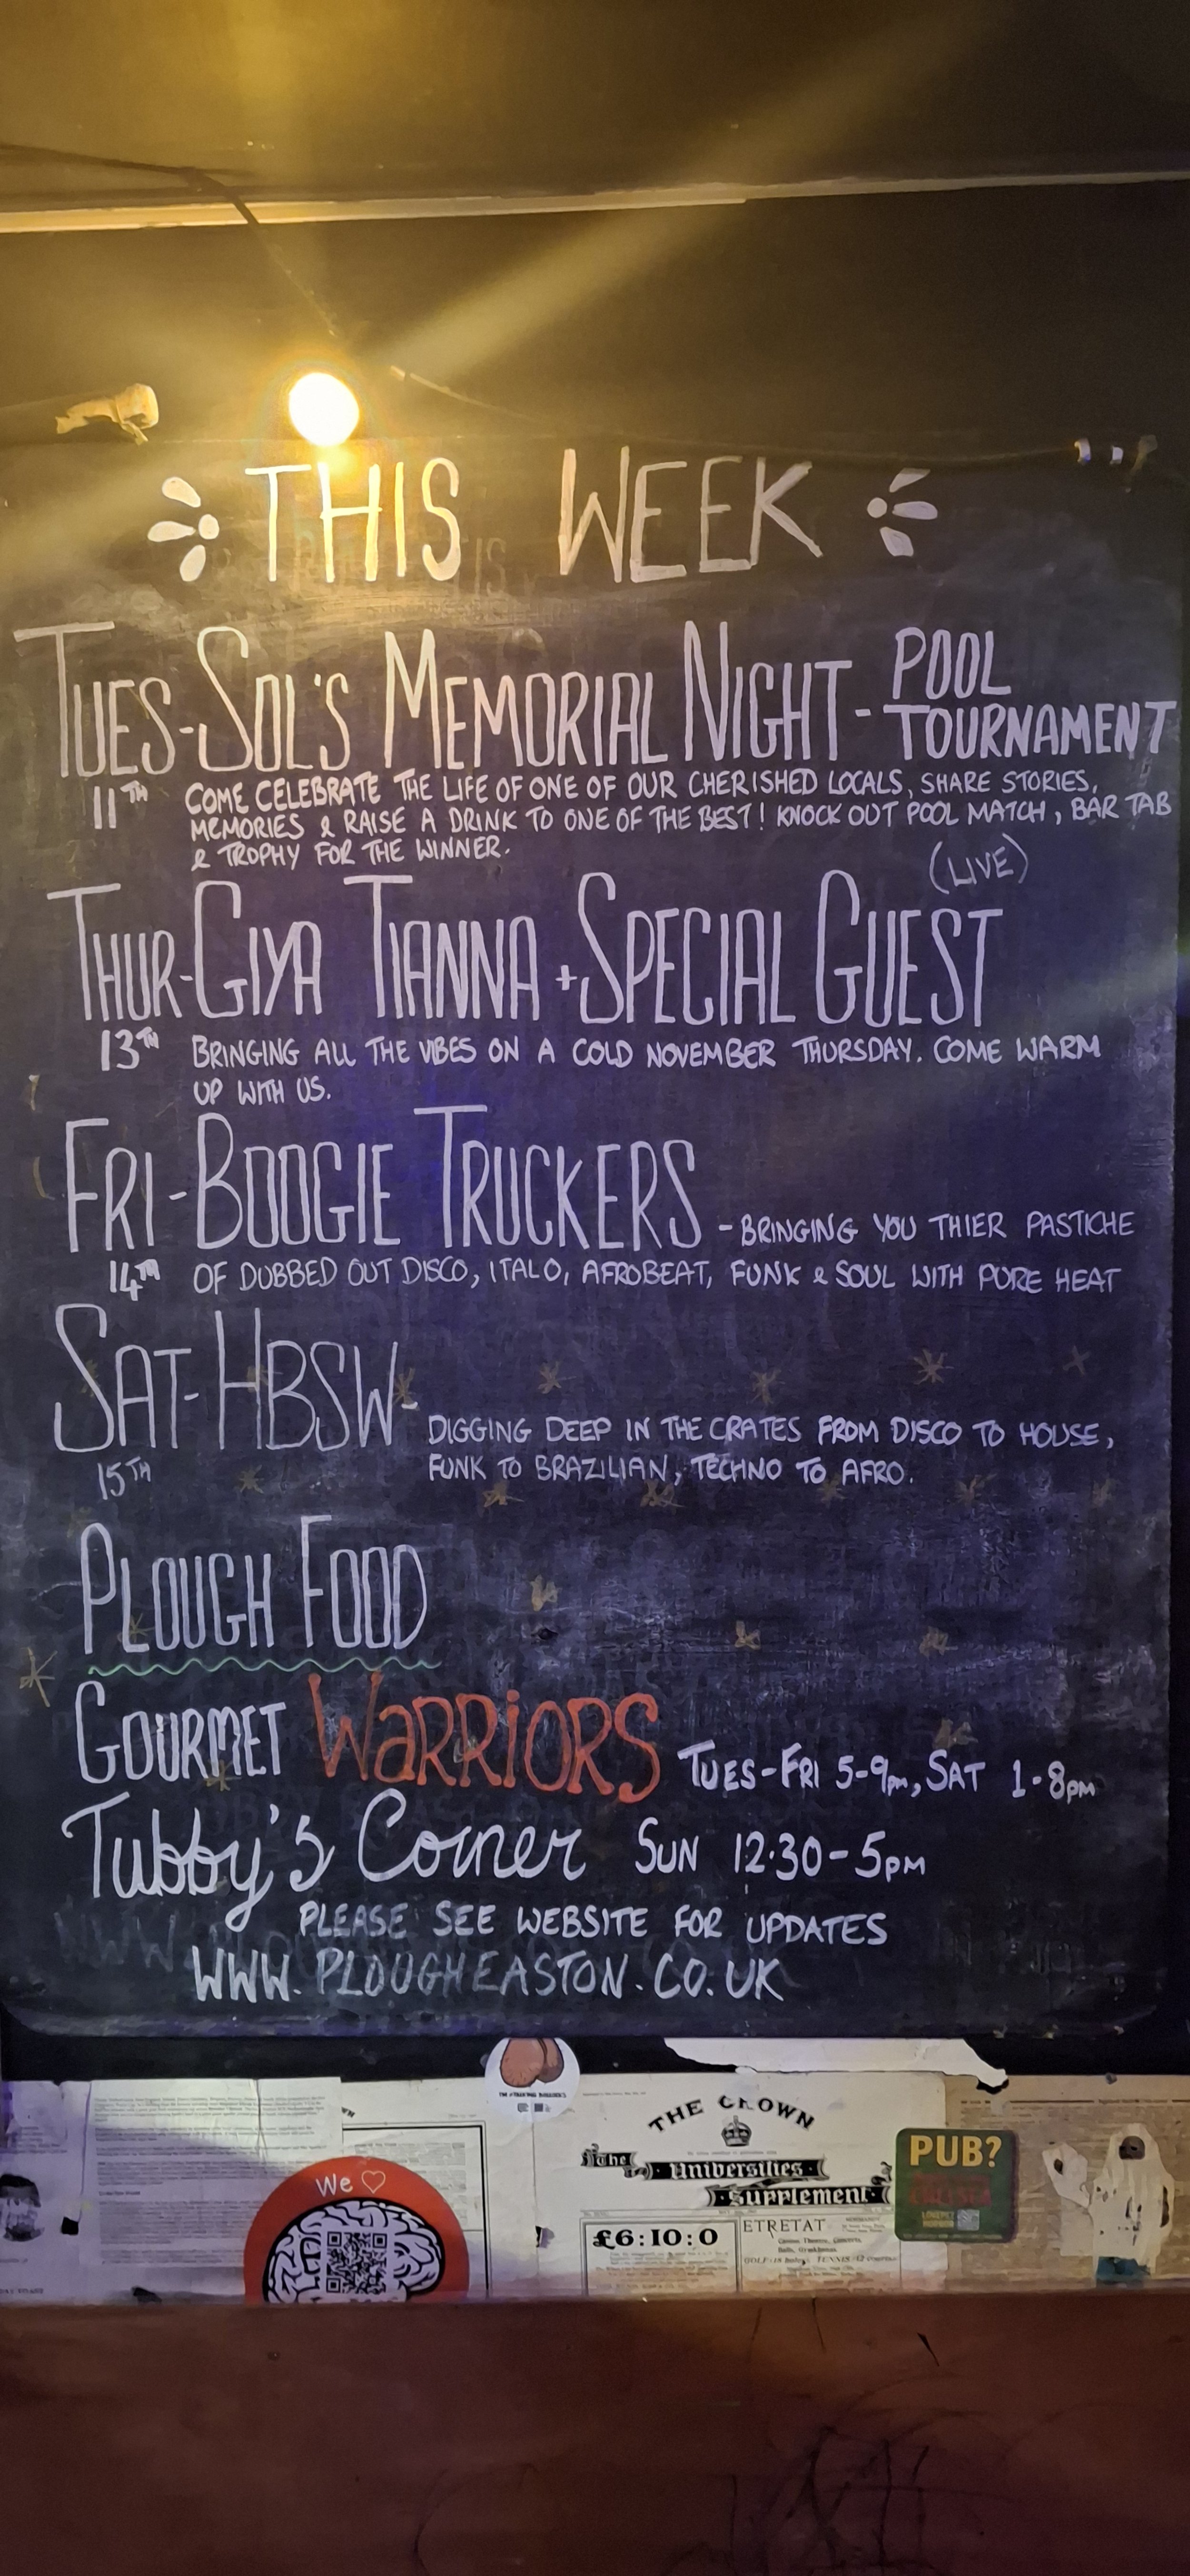 THIS WEEK
TUES - SOL'S MEMORIAL NIGHT - POOL TOURNAMENT
11TH COME CELEBRATE THE LIFE OF ONE OF OUR CHERISHED LOCALS, SHARE STORIES,
MEMORIES & RAISE A DRINK TO ONE OF THE BEST! KNOCK OUT POOL MATCH, BAR TAB
& TROPHY FOR THE WINNER.
(LIVE)
THUR - GIYA TIANNA + SPECIAL GUEST
13TH BRINGING ALL THE VIBES ON A COLD NOVEMBER THURSDAY. COME WARM
UP WITH US.
FRI - BOOGIE TRUCKERS - BRINGING YOU THIER PASTICHE
14TH OF DUBBED OUT DISCO, ITALO, AFROBEAT, FUNK & SOUL WITH PURE HEAT
SAT - HBSW - DIGGING DEEP IN THE CRATES FROM DISCO TO HOUSE,
15TH FUNK TO BRAZILIAN, TECHNO TO AFRO.
PLOUGH FOOD
GOURMET WARRIORS TUES-FRI 5-9pm, SAT 1-8pm
Tubby's Corner SUN 12.30-5PM
PLEASE SEE WEBSITE FOR UPDATES
WWW.PLOUGHEASTON.CO.UK
THE CROWN
The
Universities
Supplement
We
PUB?
£6:10:0
ETRETAT